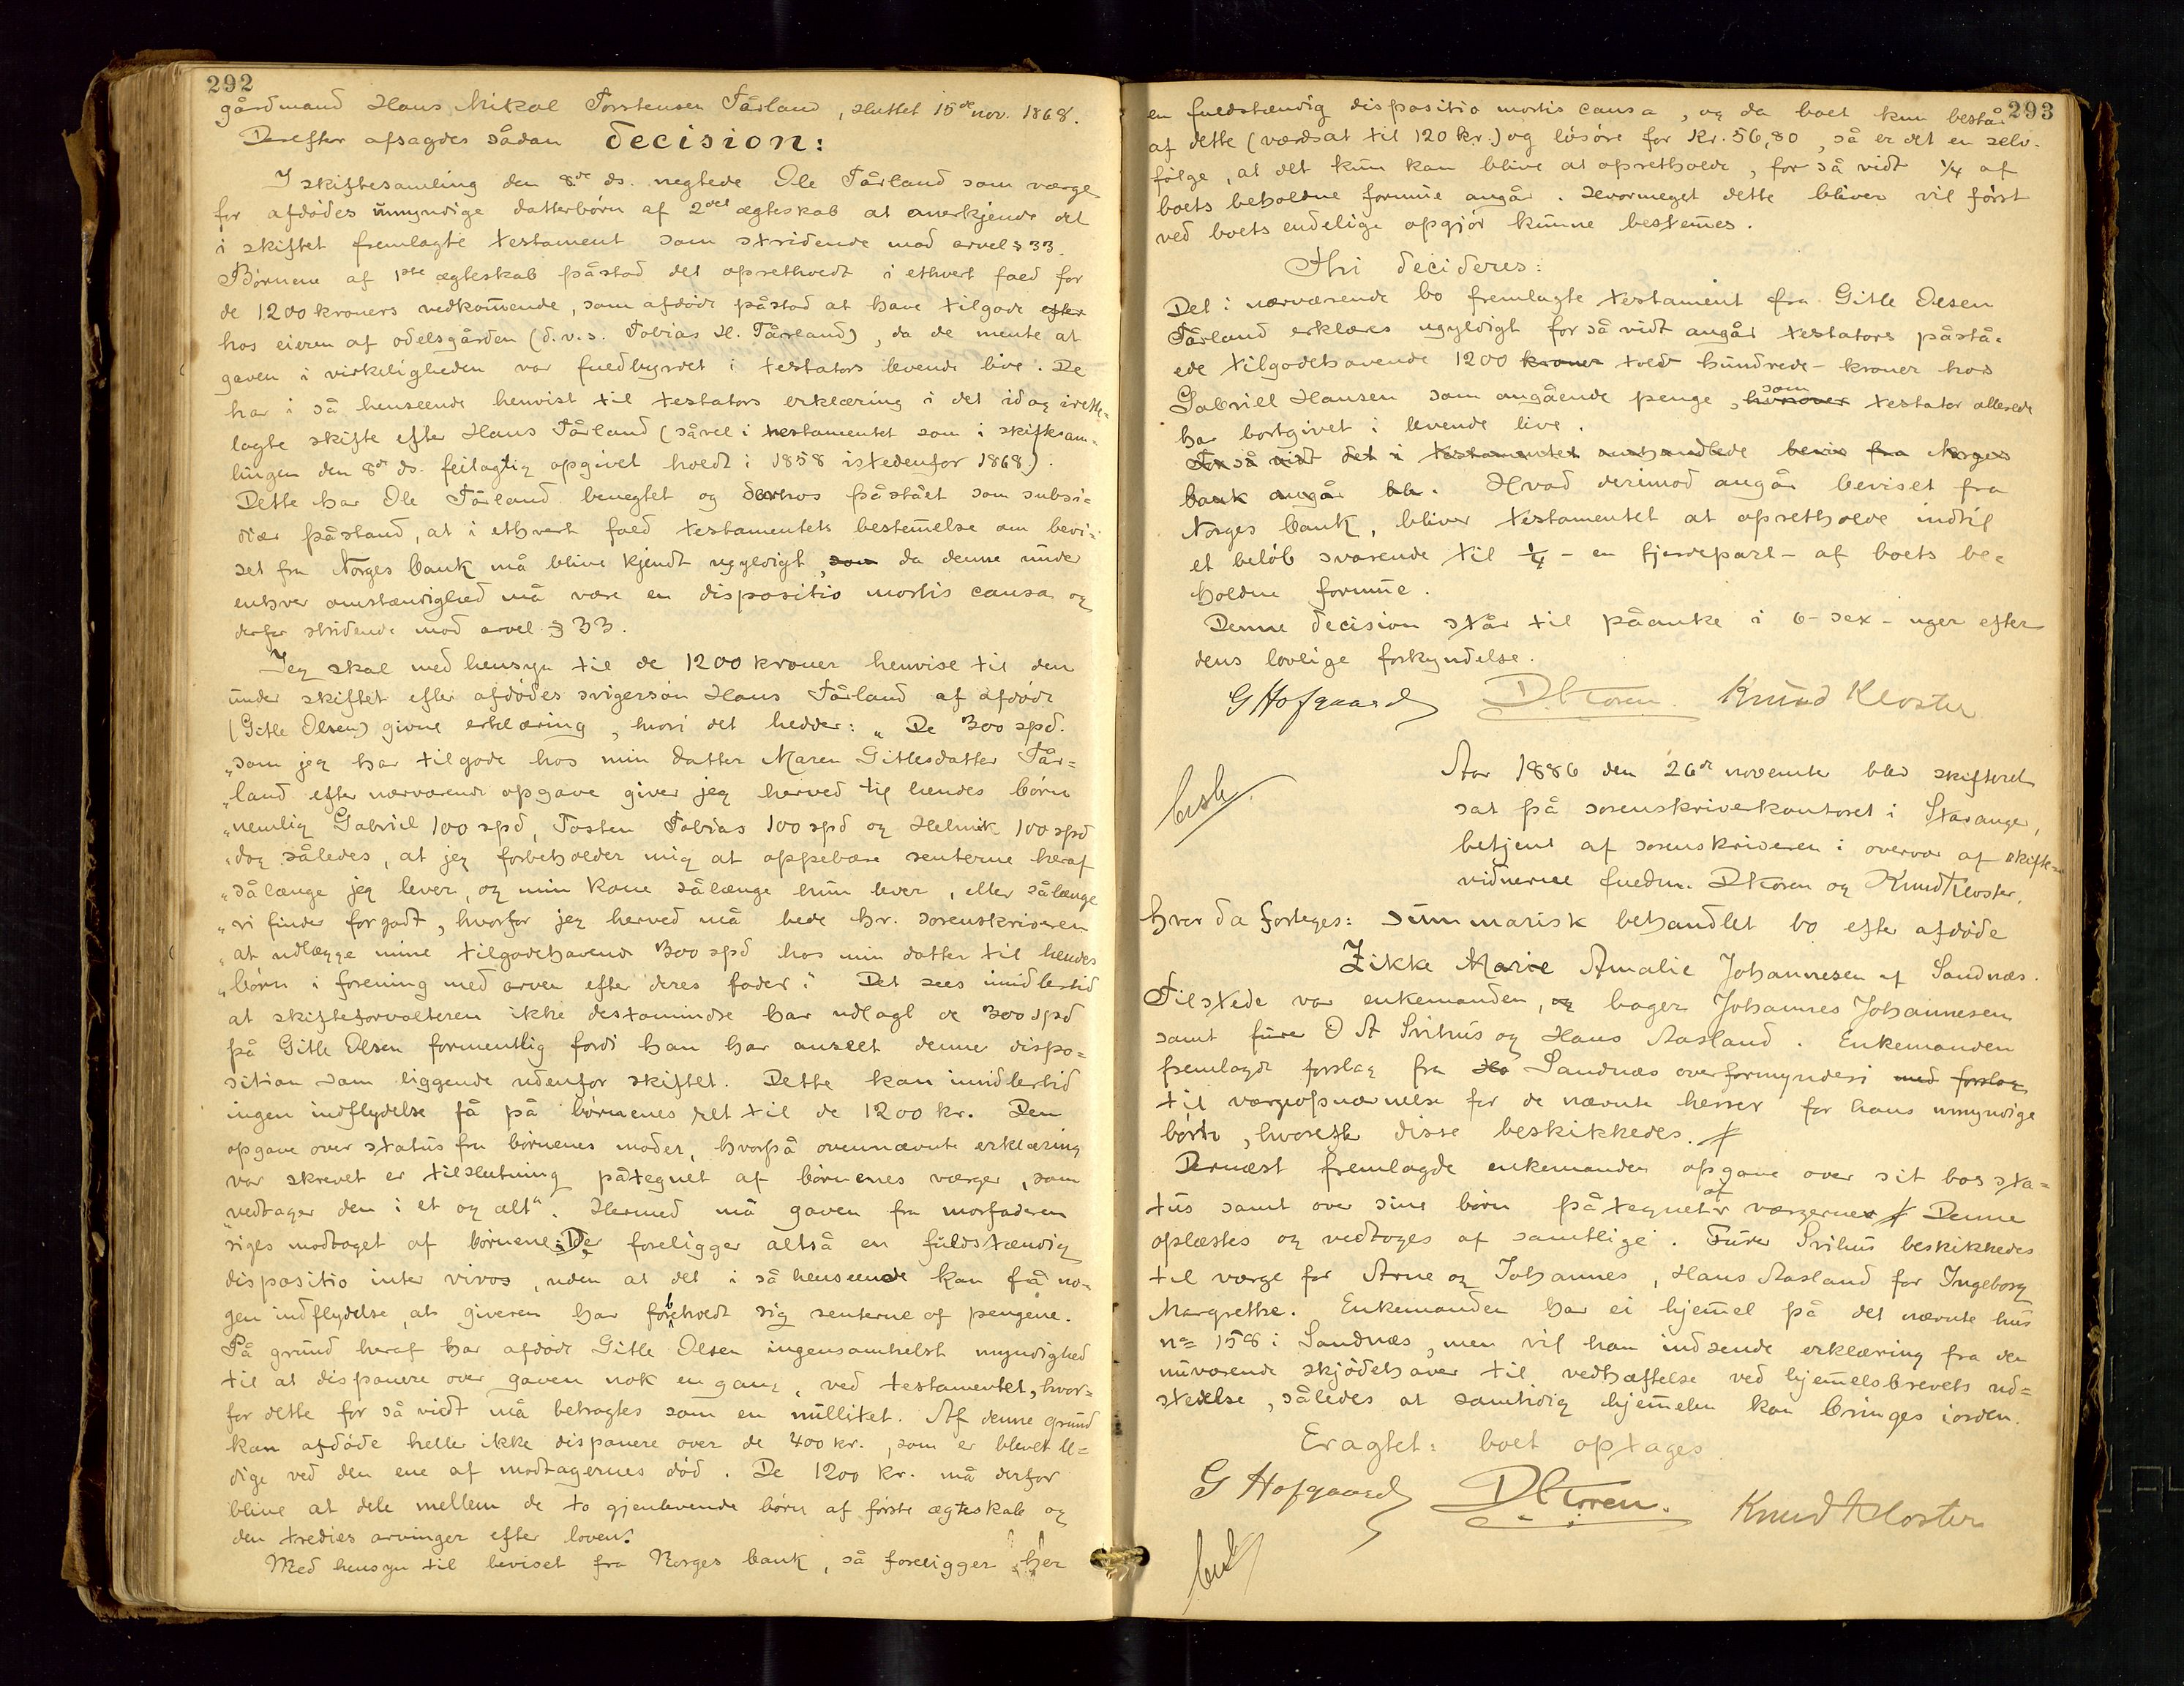 292
gårdmand Hans Mikal Torstensen Tårland, sluttet 15de nov. 1868.
Derefter afsagdes sådan decision:
I skiftesamling den 8de ds. negtede Ole Tårland som værge
for afdødes umyndige datterbörn af 2det ægteskab at anerkjende det
i skiftet fremlagte testament som stridende mod arvel § 33.
Börnene af 1ste ægteskab påstod det oprethvedt i ethvert faed for
de 1200 kroners vedkommende, som afdøde påstod at have tilgode efter
hos eieren af odelsgården (d.v.s. Tobias H. Tårland), da de mente at
gaven i virkeligheden var fuedbyrdet i testators levende live. De
har i så henseende henvist til testators erklæring i det idag irette-
lagte skifte efter Hans Tårland (såvel i testamentet som i skiftesam-
lingen den 8de ds. feilagtig opgivet hvedt i 1858 istedenfor 1868).
Dette har Ole Tårland benegtet og derhos påstået som subsi-
diær påstand, at i ethvert faed testamentets bestemmelse om bevi-
set fra Norges bank må blive kjendt ugyldigt, som da denne under
enhver omstændighed må være en dispositio mortis causa og
derfor stridende mod arvel § 33.
Jeg skal med hensyn til de 1200 kroner henvise til den
under skiftet efter afdødes svigersön Hans Tårland af afdøde
(Gitle Olsen) givne erklæring, hvori det hedder: „De 300 spd.
„som jeg har tilgode hos min datter Maren Gitlesdatter Tår-
„land efter nærværende opgave giver jeg herved til hendes börn
„nemlig Gabriel 100 spd, Tosten Tobias 100 spd og Helmik 100 spd
„dog således, at jeg forbeholder mig at oppebære renterne heraf
„sålænge jeg lever, og min kone sålænge hun lever, eller sålænge
„vi finder forgodt, hvorfor jeg herved må bede hr. sorenskriveren
„at udlægge mine tilgodehavende 300 spd hos min datter til hendes
„börn i forening med arven efter deres fader.“ Det sees imidlertid
at skifteforvalteren ikke destomindre har udlagt de 300 spd
på Gitle Olsen formentlig fordi han har anseet denne dispo-
sition som liggende udenfor skiftet. Dette kan imidlertid
ingen indflydelse få på börnenes ret til de 1200 kr. Den
opgave over status fra börnenes moder, hvorpå ovennævnte erklæring
var skrevet er tilslutning påtegnet af börnenes værger, som
„vedtager den i et og alt“. Hermed må gaven fra morfaderen
siges modtaget af börnene. Der foreligger altså en fuldstændig
dispositio inter vivos, uden at det i så henseende kan få no-
gen indflydelse, at giveren har forbehvedt sig renterne af pengene.
På grund heraf har afdøde Gitle Olsen ingensomhelst myndighed
til at disponere over gaven nok engang, ved testamentet, hvor-
for dette for så vidt må betragtes som en nullitet. Af denne grund
kan afdøde heller ikke disponere over de 400 kr., som er blevet le-
dige ved den ene af modtagernes död. De 1200 kr. må derfor
blive at dele mellem de to gjenlevende börn af förste ægteskab og
den tredies arvinger efter loven.
Med hensyn til beviset fra Norges bank, så foreligger her
293
en fuedstændig dispositio mortis causa, og da boet kun består
af dette (værdsat til 120 kr.) og lösöre for Kr. 56,80, så er det en selv-
følge, at det kun kan blive at opretholde, for så vidt 1/4 af
boets beholdne formue angår. Hvormeget dette bliver vil först
ved boets endelige opgjör kunne bestemmes.
Thi decideres:
Det i nærværende bo fremlagte testament fra Gitle Olsen
Tårland erklæres ugyldigt for så vidt angår testators påstå-
ede tilgodehavende 1200 kroner tolv hundrede - kroner hos
Gabriel Hansen som angående penge, hvorover som testator allerede
har bortgivet i levende live.
For så vidt det i testamentet omhandlede bevis fra Norges
bank angår ble. Hvad derimod angår beviset fra
Norges bank, bliver testamentet at opretholde indtil
et belöb svarende til 1/4 - en fjerdepart - af boets be-
holdne formue.
Denne decision står til påanke i 6 - sex - uger efter
dens lovlige forkyndelse.
G Hofgaard D. Koren. Knud Kloster
besh.
Aar 1886 den 26de november blev skifteret
sat på sorenskriverkontoret i Stavanger,
betjent af sorenskriveren i overvær af skifte-
vidnerne fuedm. D Koren og Knud Kloster,
hvor da foretoges: summarisk behandlet bo efter afdøde
Zikke Marie Amalie Johannesen af Sandnæs.
Tilstede var enkemanden, og bager Johannes Johannesen
samt furer O A Svihus og Hans Aasland. Enkemanden
fremlagde forslag fra Ho Sandnæs overformynderi med forslag
til værgeopnævnelse for de nævnte herrer for hans umyndige
börn, hvorefter disse beskikkedes.
Dernæst fremlagde enkemanden opgave over sit bos sta-
tus samt over sine börn påtegnet af værgerne. Denne
oplæstes og vedtoges af samtlige. Furer Svihus beskikkedes
til værge for Arne og Johannes, Hans Aasland for Ingeborg
Margrethe. Enkemanden har ei hjemmel på det nævnte hus
no 158 i Sandnæs, men vil han indsende erklæring fra den
nuværende skjödehaver til vedhæftelse ved hjemmelsbrevets ud-
stedelse, således at samtidig hjemmelen kan bringes iorden.
Eragtet: boet optages
G Hofgaard D Koren. Knud Kloster